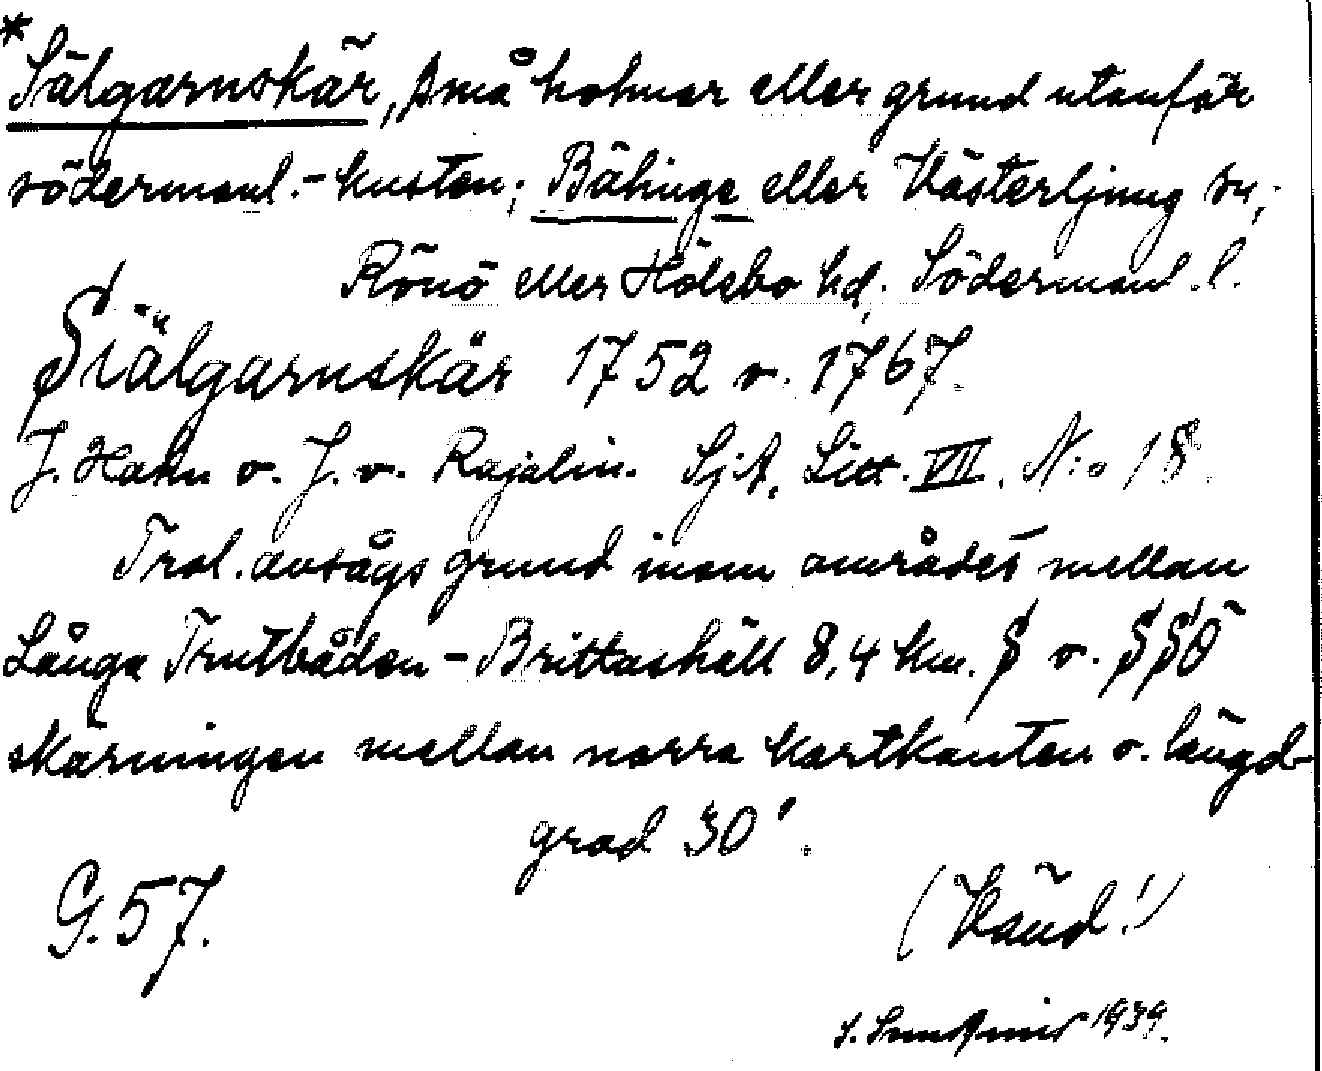 * Sälgarnskär, små holmar eller grund utanför
södermanl.-kusten; Bälinge eller Västerljung sn;
Rönö eller Hölebo hd; Södermanl. l.
Siälgarnskär 1752 o. 1767.
J. Hahn o. J. v. Rajalin. Sj.A. Litt. VII. N:o 18.
Trol. avsågs grund inom området mellan
Långa Trutbåden - Brittashäll 8,4 km. S o. SSÖ
skärningen mellan norra kartkanten o. längd-
grad 30'.
G. 57.
(Vänd!)
1939.